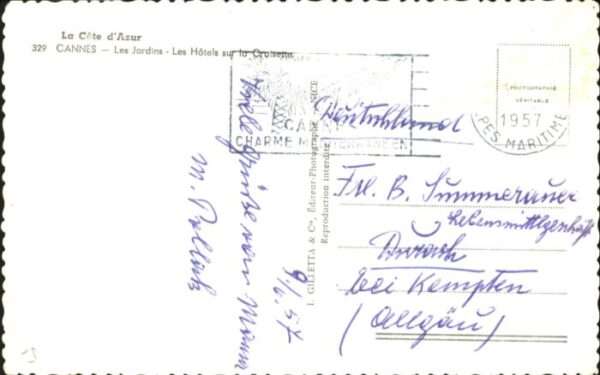 La Côte d'Azur
329 CANNES — Les Jardins - Les Hôtels sur la Croisette
CHARME MÉDITERRANÉEN
PHOTOGRAPHIE
VÉRITABLE
1957
PES MARITIME
L. GILLETTA & Cie, Éditeur-Photographe, NICE
Reproduction interdite
Viele Grüße von
M. Pollak
9/6.57
Deutschland
Frl. B. Summerauer
Lebensmittelgeschäft
Durach
bei Kempten
(Allgäu)